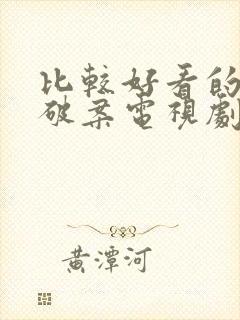 比較好看的
破案電視劇
黃潭河